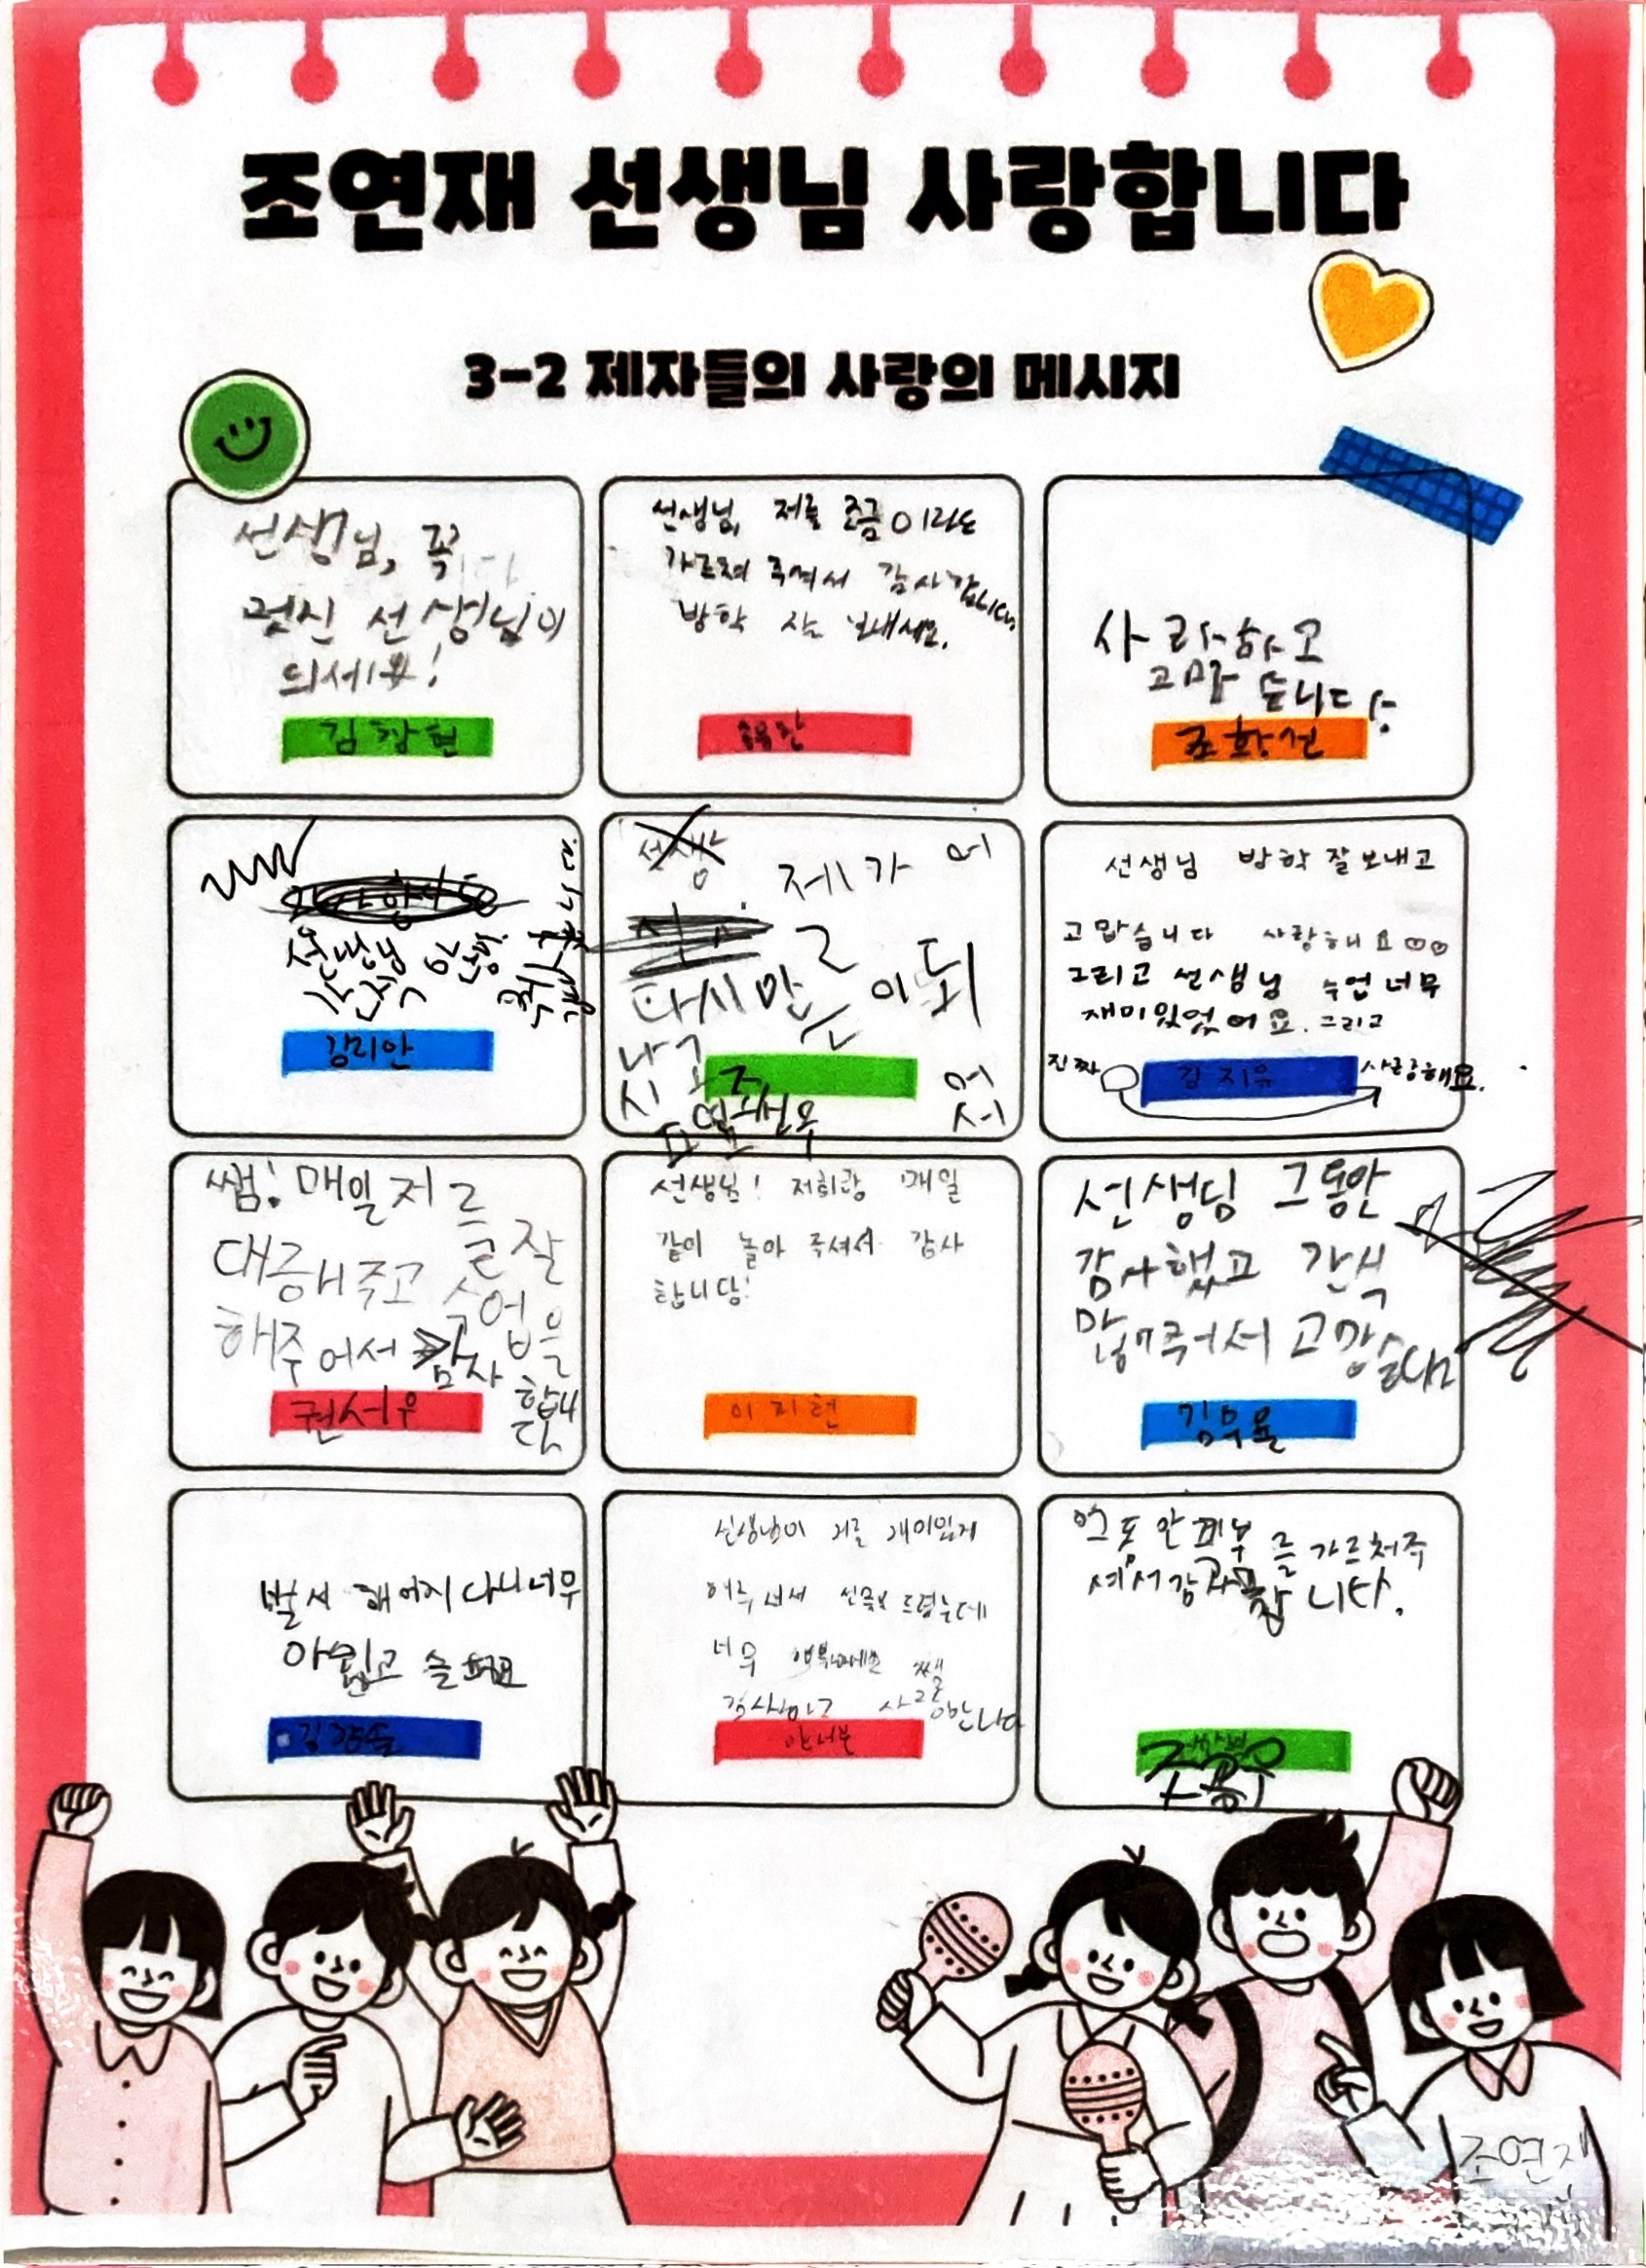 조연재 선생님 사랑합니다
3-2 제자들의 사랑의 메시지
선생님, 꼭
멋진 선생님이
되세요!
김창현
선생님, 저를 조금이라도
가르쳐 주셔서 감사합니다
방학 잘 보내세요.
사랑하고
고맙습니다
조황선
선생님
간식
강리안
제가 어
른이 되
어서
다시 만
나고
시
조선우
선생님 방학 잘 보내고
고맙습니다 사랑해요
그리고 선생님 수업 너무
재미있었어요. 그리고
진짜 사랑해요.
김지유
쌤! 매일 저를 잘
대응해주고 수업을
해주어서 감사
합니다
권서우
선생님! 저희랑 매일
같이 놀아 주셔서 감사
합니당!
이지현
선생님 그동안
감사했고 간식
많이 주셔서 고맙습니다
김무율
벌써 헤어지다니 너무
아쉽고 슬퍼요
선생님이 저를 재미있게
너무
감사하고 사랑합니다
안서분
를 가르처주
셔서 감사합니다.
조연재